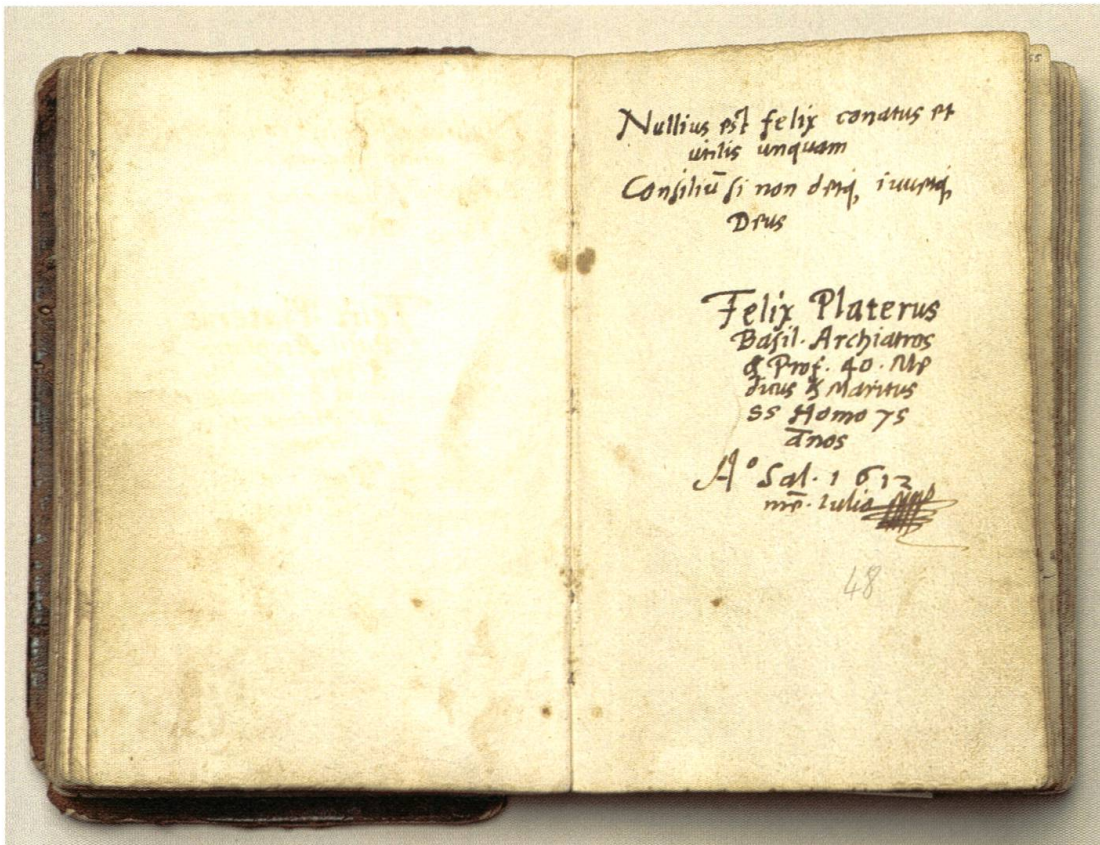 Nullius est felix conatus et
utilis unquam
Consiliū si non detq, iuuetq,
Deus
Felix Platerus
Basil. Archiatros
& Prof. 40. Me
dicus & Maritus
55 Homo 75
ānos
A° Sal. 1612
mē. Iulio
48
55